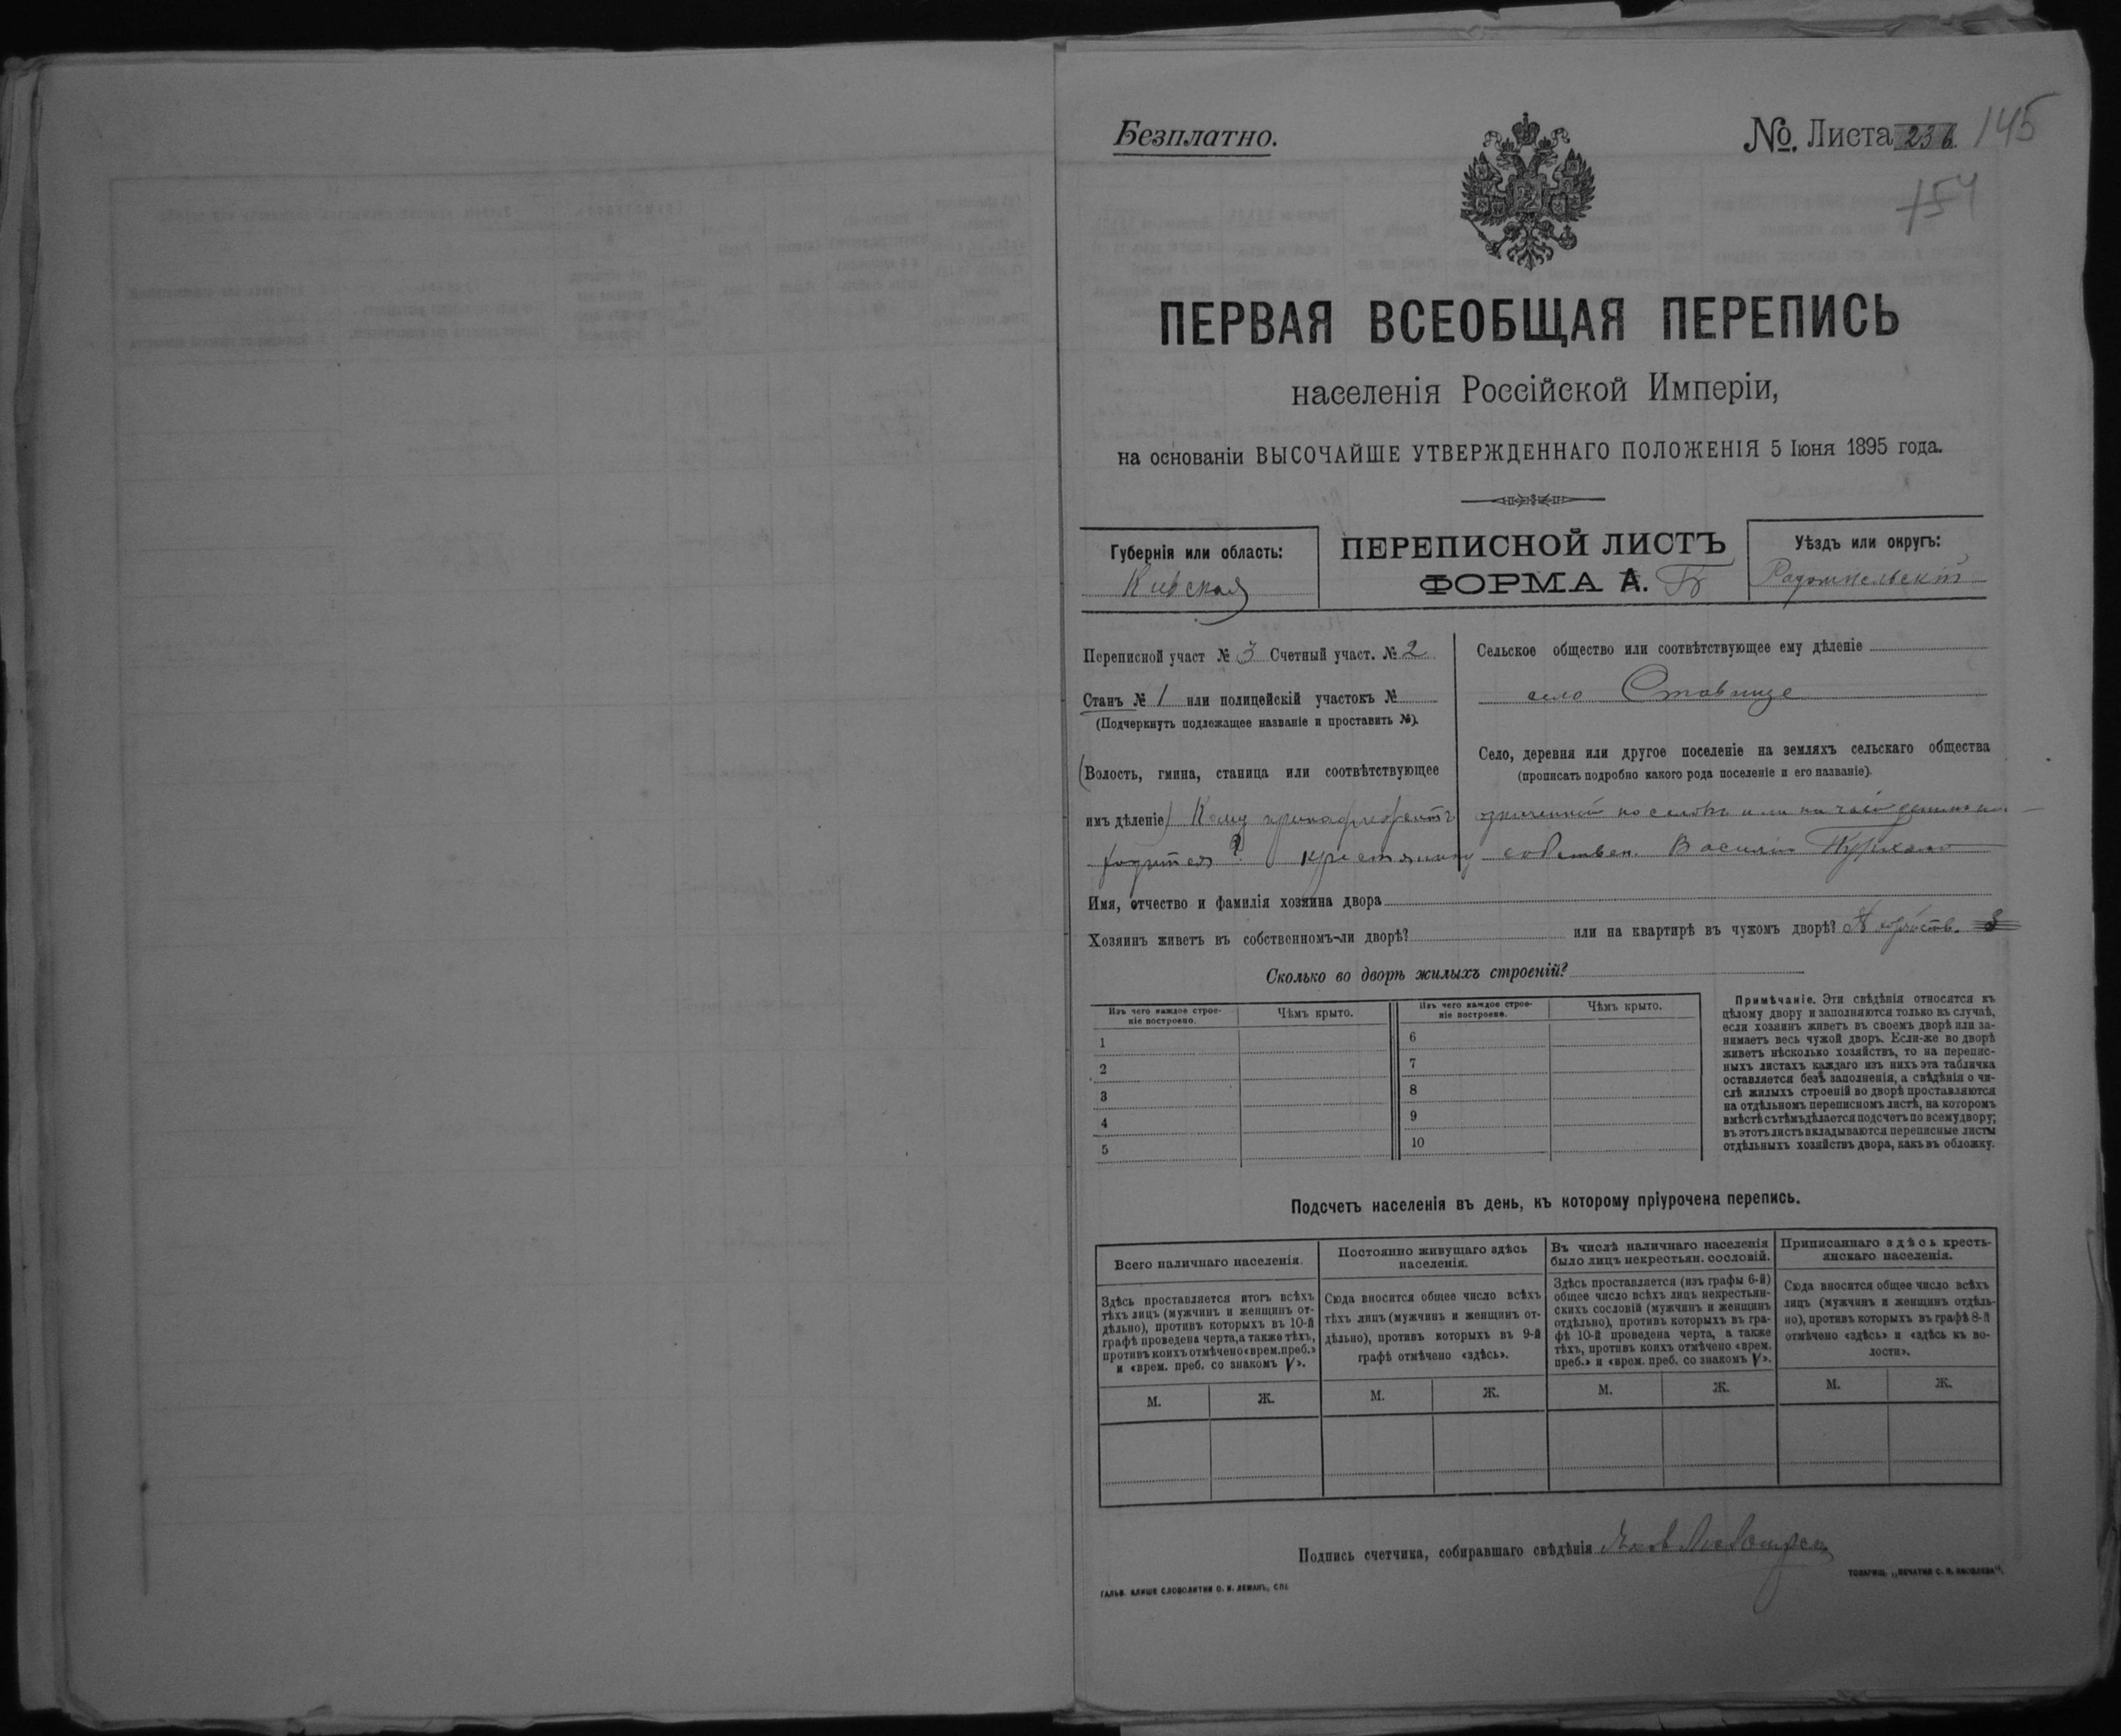 Безплатно.
No. Листа 236 145
154
ПЕРВАЯ ВСЕОБЩАЯ ПЕРЕПИСЬ
населенія Россійской Имперіи,
на основаніи ВЫСОЧАЙШЕ УТВЕРЖДЕННАГО ПОЛОЖЕНІЯ 5 Іюня 1895 года.
Губернія или область:
Кіевская
ПЕРЕПИСНОЙ ЛИСТЪ
ФОРМА А. Б
Уѣздъ или округъ:
Радомысльскій
Переписной участ № 3 Счетный участ. № 2
Станъ № 1 или полицейскій участокъ №
(Подчеркнуть подлежащее названіе и проставить №).
(Волость, гмина, станица или соотвѣтствующее
имъ дѣленіе) Кому принадлежитъ
Сельское общество или соотвѣтствующее ему дѣленіе
село Ставище
Село, деревня или другое поселеніе на земляхъ сельскаго общества
(прописать подробно какого рода поселеніе и его названіе).
или на чьей
? крестянину собствен. Василію
Имя, отчество и фамилія хозяина двора
Хозяинъ живетъ въ собственномъ-ли дворѣ? или на квартирѣ въ чужомъ дворѣ?
Сколько во дворѣ жилыхъ строеній?
Изъ чего каждое строе-
ніе построено.
Чѣмъ крыто.
Изъ чего каждое строе-
ніе построено.
Чѣмъ крыто.
1
2
3
4
5
6
7
8
9
10
Примѣчаніе. Эти свѣдѣнія относятся къ
цѣлому двору и заполняются только въ случаѣ,
если хозяинъ живетъ въ своемъ дворѣ или за-
нимаетъ весь чужой дворъ. Если-же во дворѣ
живетъ нѣсколько хозяйствъ, то на перепис-
ныхъ листахъ каждаго изъ нихъ эта табличка
оставляется безъ заполненія, а свѣдѣнія о чи-
слѣ жилыхъ строеній во дворѣ проставляются
на отдѣльномъ переписномъ листѣ, на которомъ
вмѣстѣ съ тѣмъ дѣлается подсчетъ по всему двору;
въ этотъ листъ вкладываются переписные листы
отдѣльныхъ хозяйствъ двора, какъ въ обложку.
Подсчетъ населенія въ день, къ которому пріурочена перепись.
Всего наличнаго населенія.
Здѣсь проставляется итогъ всѣхъ
тѣхъ лицъ (мужчинъ и женщинъ от-
дѣльно), противъ которыхъ въ 10-й
графѣ проведена черта, а также тѣхъ,
противъ коихъ отмѣчено «врем. преб.»
и «врем. преб. со знакомъ V».
М. Ж.
Постоянно живущаго здѣсь
населенія.
Сюда вносится общее число всѣхъ
тѣхъ лицъ (мужчинъ и женщинъ от-
дѣльно), противъ которыхъ въ 9-й
графѣ отмѣчено «здѣсь».
М. Ж.
Въ числѣ наличнаго населенія
было лицъ некрестьян. сословій.
Здѣсь проставляется (изъ графы 6-й)
общее число всѣхъ лицъ некрестьян-
скихъ сословій (мужчинъ и женщинъ
отдѣльно), противъ которыхъ въ гра-
фѣ 10-й проведена черта, а также
тѣхъ, противъ коихъ отмѣчено «врем.
преб.» и «врем. преб. со знакомъ V».
М. Ж.
Приписаннаго здѣсь кресть-
янскаго населенія.
Сюда вносится общее число всѣхъ
лицъ (мужчинъ и женщинъ отдѣль-
но), противъ которыхъ въ графѣ 8-й
отмѣчено «здѣсь» и «здѣсь къ во-
лости».
М. Ж.
Подпись счетчика, собиравшаго свѣдѣнія
ГАЛЬВ. КЛИШЕ СЛОВОЛИТНИ О. И. ЛЕМАНЪ, СПБ
ТОВАРИЩ. „ПЕЧАТНЯ С. П. ЯКОВЛЕВА“.